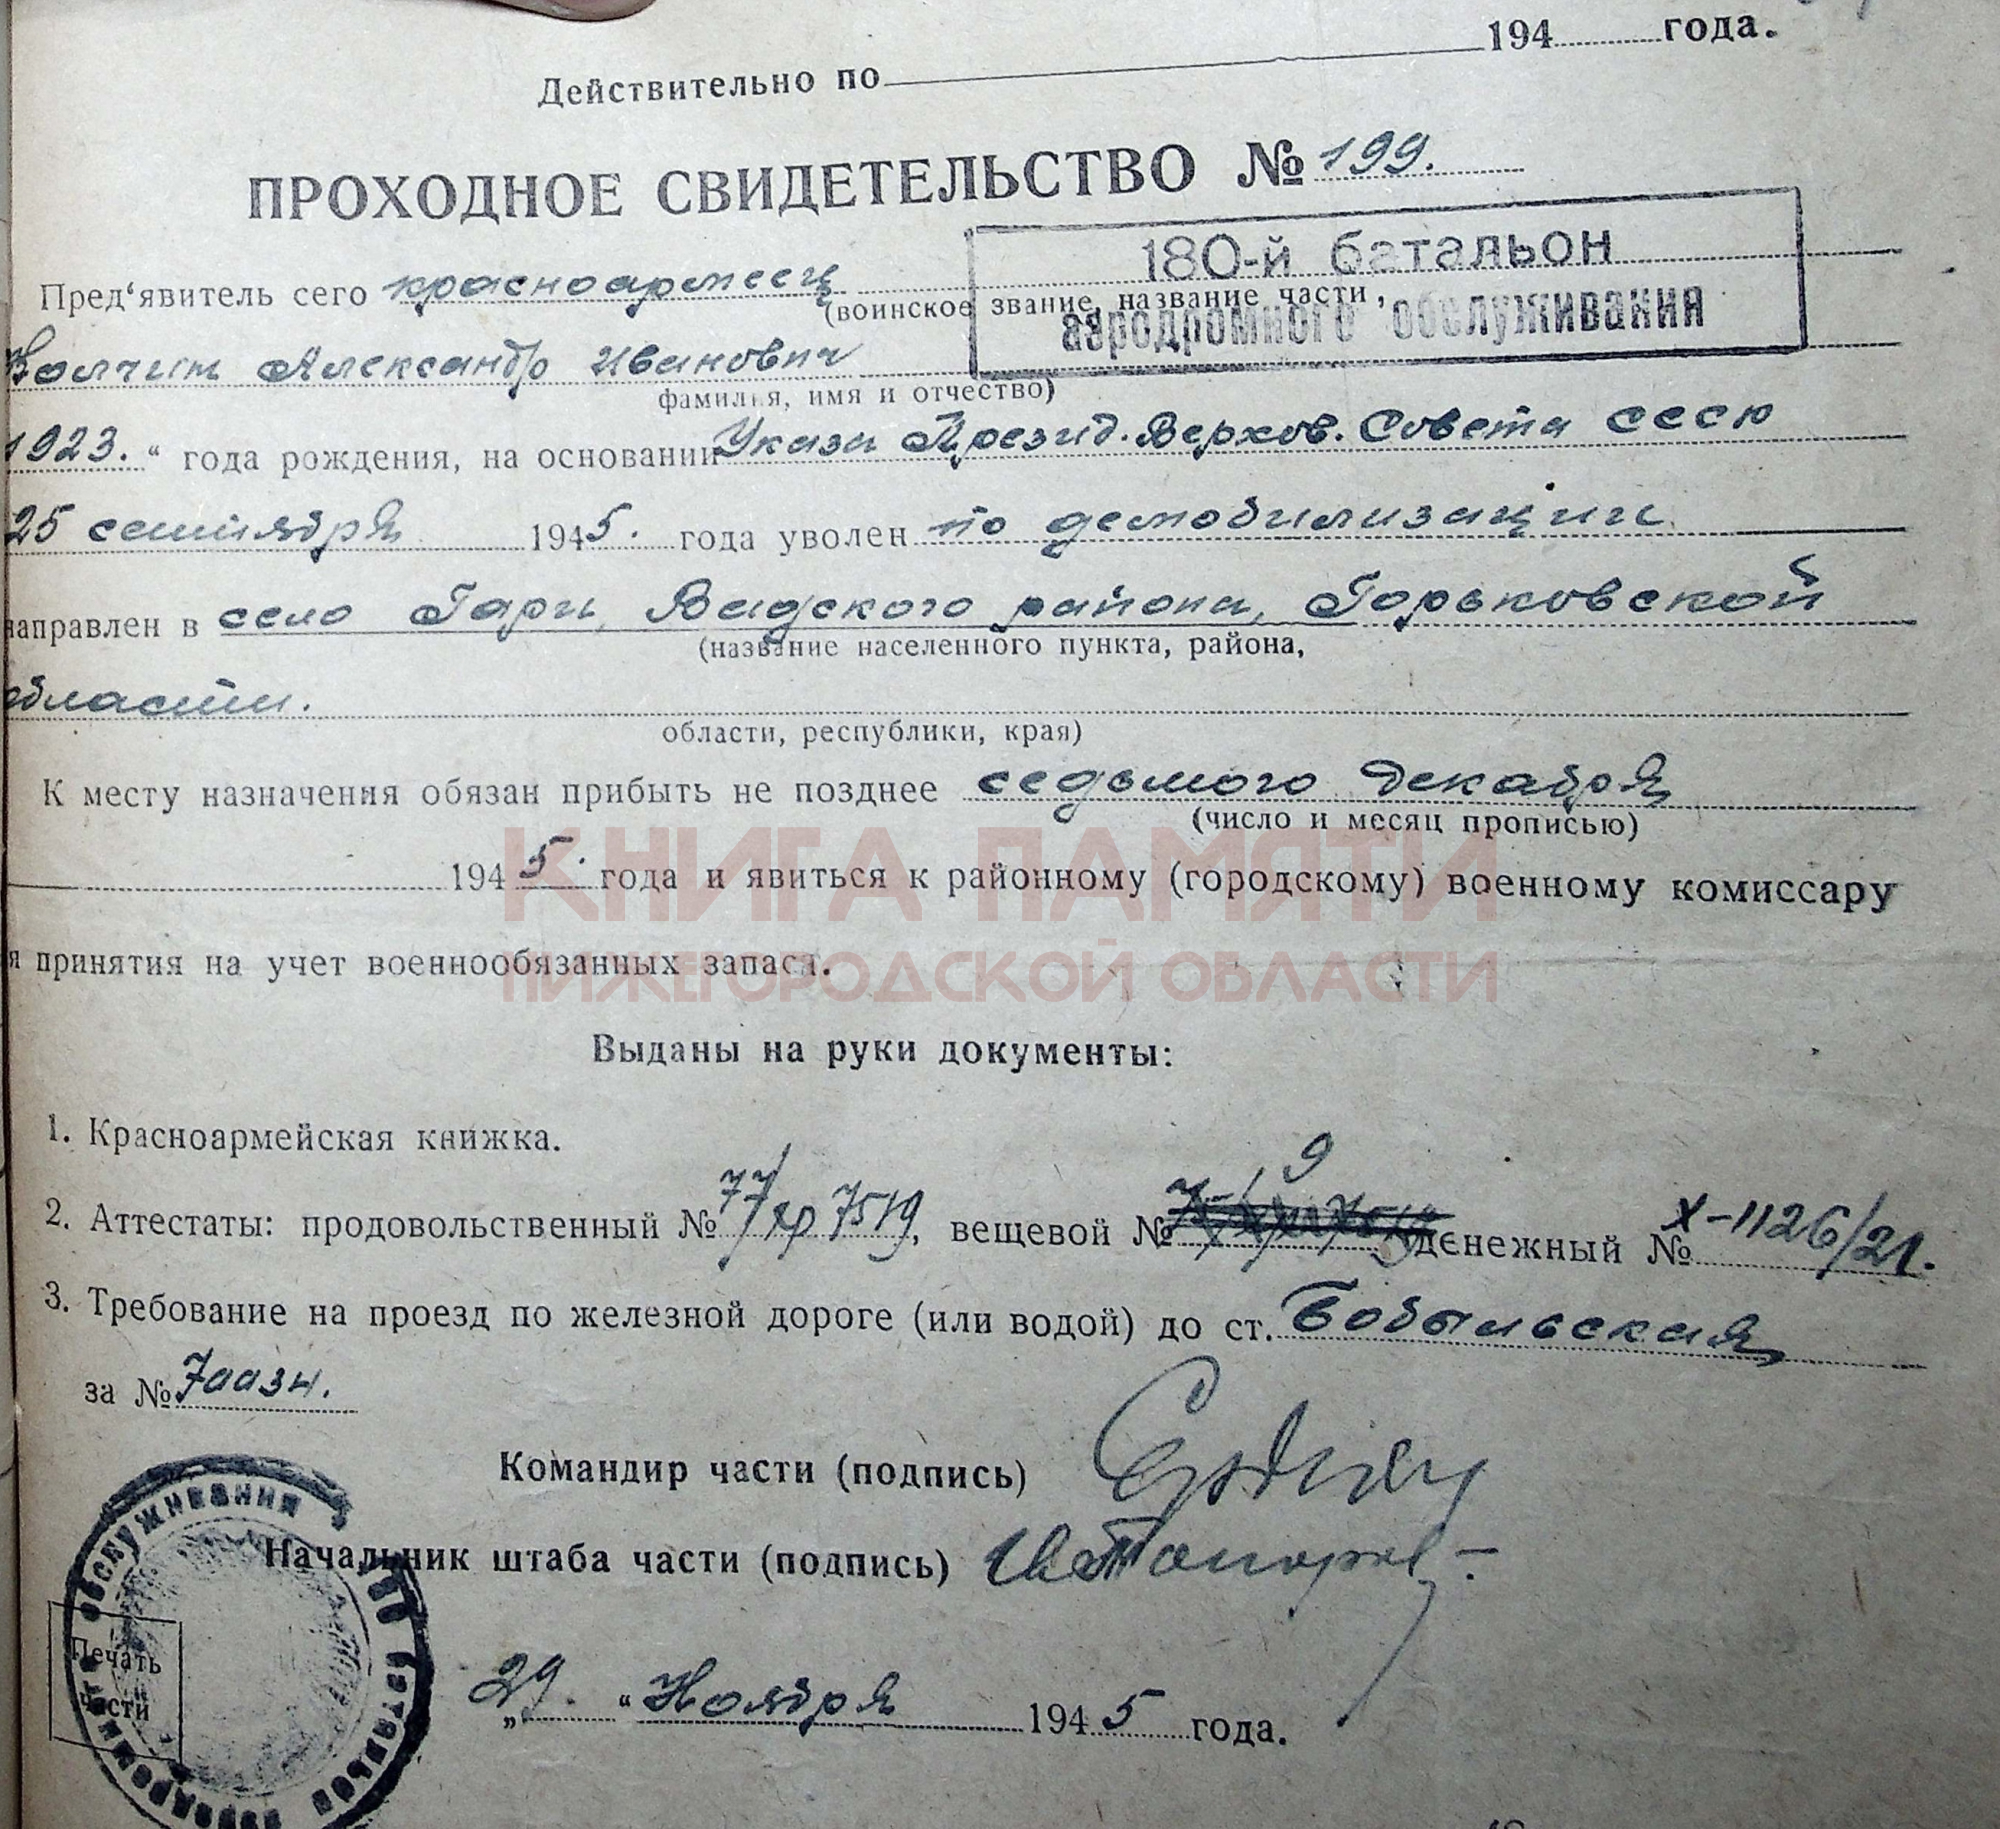 194 года.
Действительно по
ПРОХОДНОЕ СВИДЕТЕЛЬСТВО № 199.
180-й батальон
Пред'явитель сего красноармеец
(воинское звание, название части,
аэродромного обслуживания
Колчин Александр Иванович
фамилия, имя и отчество)
1923. " года рождения, на основании Указа Презид. Верхов. Совета СССР
25 сентября 1945. года уволен по демобилизации
направлен в село Гари, Вадского района, Горьковской
(название населенного пункта, района,
области.
области, республики, края)
К месту назначения обязан прибыть не позднее седьмого декабря
(число и месяц прописью)
1945. года и явиться к районному (городскому) военному комиссару
КНИГА ПАМЯТИ
я принятия на учет военнообязанных запаса.
НИЖЕГОРОДСКОЙ ОБЛАСТИ
Выданы на руки документы:
1. Красноармейская книжка.
2. Аттестаты: продовольственный № 77/хр 7519, вещевой № денежный № х-1126/21.
3. Требование на проезд по железной дороге (или водой) до ст. Бобыльская
за №
Командир части (подпись)
Начальник штаба части (подпись)
Печать
части
обслуживания
„29. " Ноября 1945 года.